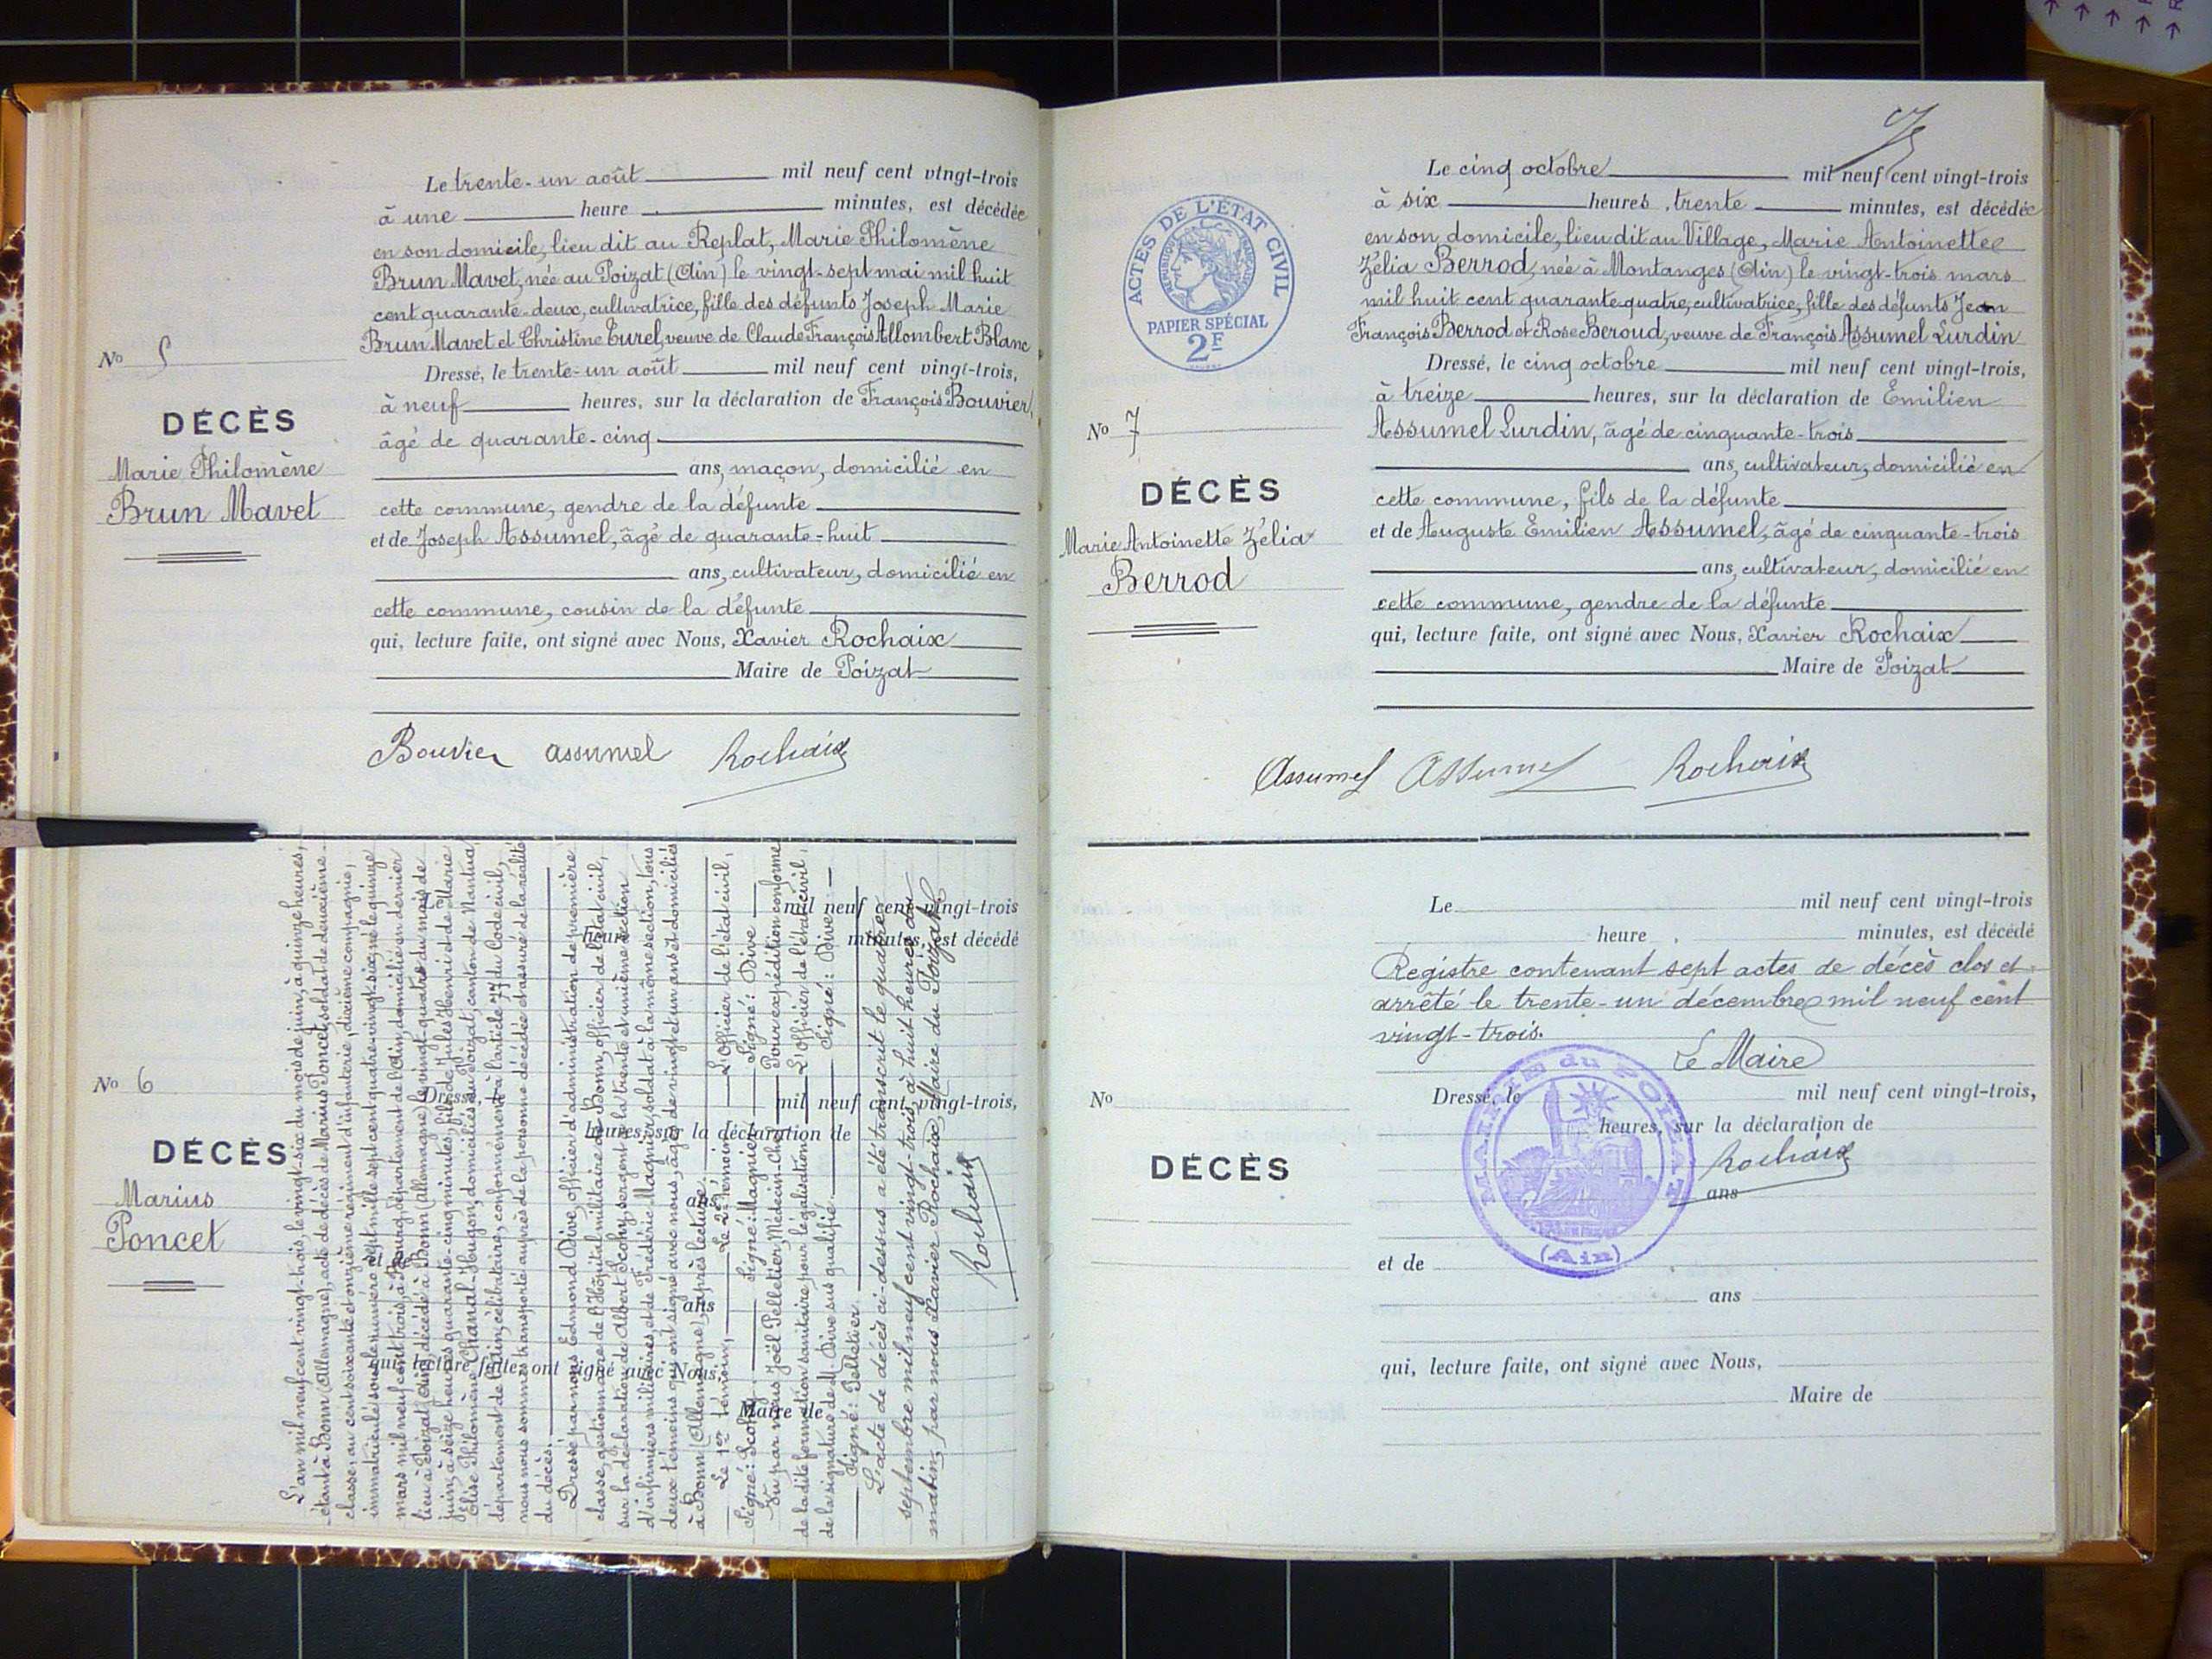 Le trente-un août mil neuf cent vingt-trois
à une heure minutes, est décédée
en son domicile, lieu dit au Replat, Marie Philomène
Brun Mavet, née au Poizat (Ain) le vingt-sept mai mil huit
cent quarante-deux, cultivatrice, fille des défunts Joseph Marie
Brun Mavet et Christine Turel, veuve de Claude François Allombert Blanc
Nº 5
Dressé, le trente-un août mil neuf cent vingt-trois,
à neuf heures, sur la déclaration de François Bouvier,
DÉCÈS
âgé de quarante-cinq
Marie Philomène
ans, maçon, domicilié en
Brun Mavet
cette commune, gendre de la défunte
et de Joseph Assumel, âgé de quarante-huit
ans, cultivateur, domicilié en
cette commune, cousin de la défunte
qui, lecture faite, ont signé avec Nous, Xavier Rochaix
Maire de Poizat
Bouvier assumel Rochaix
Nº 6
DÉCÈS
Marius
Poncet
L'an mil neuf cent vingt-trois, le vingt-six du mois de juin, à quinze heures,
étant à Bonn (Allemagne), acte de décès de Marius Poncet, soldat de deuxième
classe, au cent soixante et onzième régiment d'infanterie, dixième compagnie,
immatriculé sous le numéro sept mille sept cent quatre-vingt-six, né le quinze
mars mil neuf cent trois, à Bourg, département de l'Ain, domicilié en dernier
lieu à Poizat (Ain), décédé à Bonn (Allemagne) le vingt-quatre du mois de
juin, à seize heures quarante-cinq minutes, fils de Jules Henri et de Marie
Elise Philomène Chanal-Hugon, domiciliés au Poizat, canton de Nantua,
département de l'Ain, célibataire, conformément à l'article 77 du Code civil,
nous nous sommes transporté auprès de la personne décédée et assuré de la réalité
du décès.
Dressé par nous Edmond Dive, officier d'administration de première
classe, gestionnaire de l'Hôpital militaire de Bonn, officier de l'état civil,
sur la déclaration de Albert Scohy, sergent à la trente et unième section
d'infirmiers militaires, et de Frédéric Magnier, soldat à la même section, tous
deux témoins qui ont signé avec nous, âgés de vingt et un ans et domiciliés
à Bonn (Allemagne), après lecture.
Le 1er témoin, Le 2e témoin, L'Officier de l'état civil,
Signé: Scohy Signé: Magnier Signé: Dive
Vu par nous Joël Pelletier, Médecin-Chef Pour expédition conforme
de la dite formation sanitaire, pour légalisation L'Officier de l'état civil,
de la signature de M. Dive sus qualifié. Signé: Dive
Signé: Pelletier.
L'acte de décès ci-dessus a été transcrit le quatre
septembre mil neuf cent vingt-trois, à huit heures du
matin, par nous Xavier Rochaix, Maire du Poizat
Rochaix
Le mil neuf cent vingt-trois
heure minutes, est décédé
Dressé, le mil neuf cent vingt-trois,
heures, sur la déclaration de
ans
et de
ans
qui, lecture faite, ont signé avec Nous,
Maire de
7
ACTES DE L'ÉTAT CIVIL
RÉPUBLIQUE FRANÇAISE
PAPIER SPÉCIAL
2F
Le cinq octobre mil neuf cent vingt-trois
à six heures, trente minutes, est décédée
en son domicile, lieu dit au Village, Marie Antoinette
Zélia Berrod, née à Montanges (Ain) le vingt-trois mars
mil huit cent quarante quatre, cultivatrice, fille des défunts Jean
François Berrod et Rose Beroud, veuve de François Assumel Lurdin
Dressé, le cinq octobre mil neuf cent vingt-trois,
à treize heures, sur la déclaration de Emilien
Nº 7
Assumel Lurdin, âgé de cinquante-trois
ans, cultivateur, domicilié en
DÉCÈS
cette commune, fils de la défunte
Marie Antoinette Zélia
et de Auguste Emilien Assumel, âgé de cinquante-trois
Berrod
ans, cultivateur, domicilié en
cette commune, gendre de la défunte
qui, lecture faite, ont signé avec Nous, Xavier Rochaix
Maire de Poizat
Assumel Assumel Rochaix
Le mil neuf cent vingt-trois
heure minutes, est décédé
Registre contenant sept actes de décès clos et
arrêté le trente-un décembre mil neuf cent
vingt-trois.
Le Maire
Nº
Dressé, le mil neuf cent vingt-trois,
heures, sur la déclaration de
DÉCÈS
Rochaix
ans
MAIRIE du POIZAT
(Ain)
et de
ans
qui, lecture faite, ont signé avec Nous,
Maire de